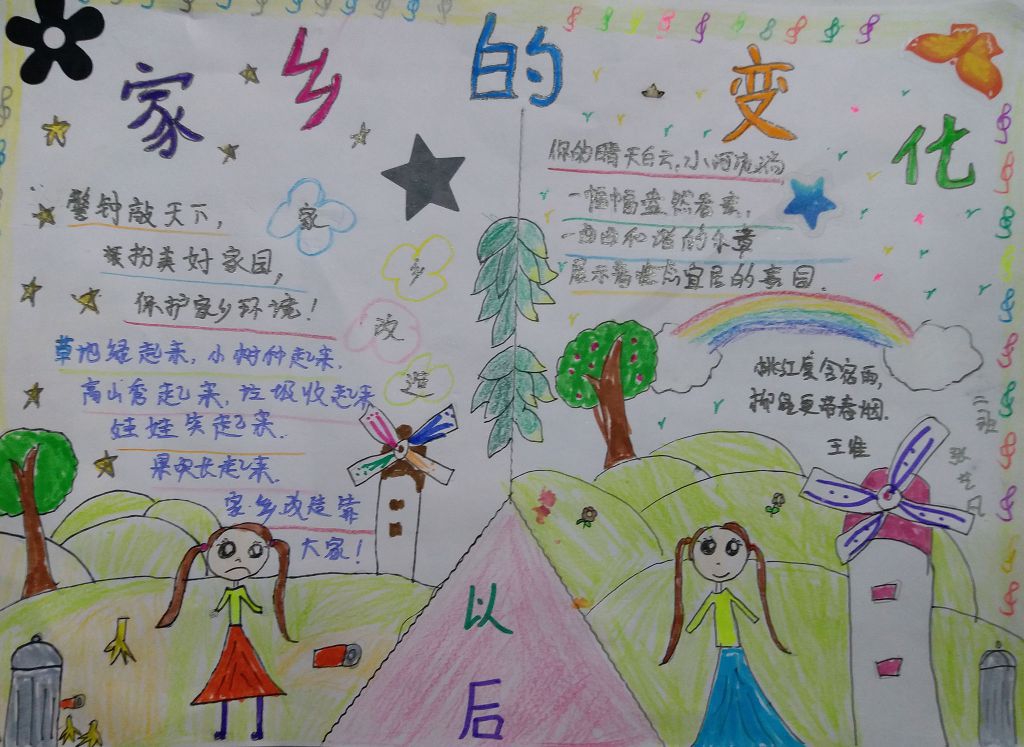 家乡的变化
警钟敲天下,
装扮美好家园,
保护家乡环境!
草地绿起来,小树种起来,
高山秀起来,垃圾收起来
娃娃笑起来.
果实长起来.
家乡改造靠
大家!
家
乡
改
造
你的晴天白云,小河流淌,
一幅幅盎然春景,
一曲曲和谐的乐章
展示着生态宜居的家园.
桃红复含宿雨,
柳绿更带春烟.
王维
二班
以
后